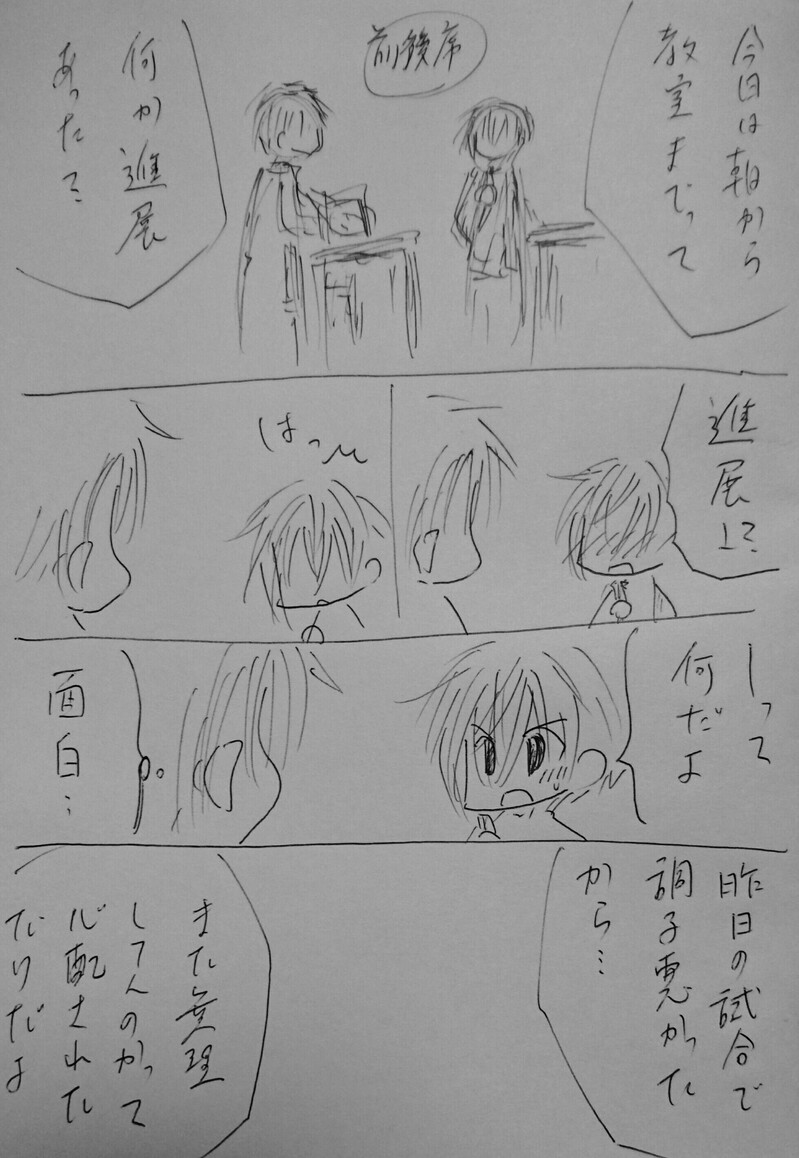 今日は朝から
教室までって
前後席
何か進展
あった？
進展！？
はっ
しって
何だよ
面白…
昨日の試合で
調子悪かった
から…
また無理
してんのかって
心配された
だけだよ